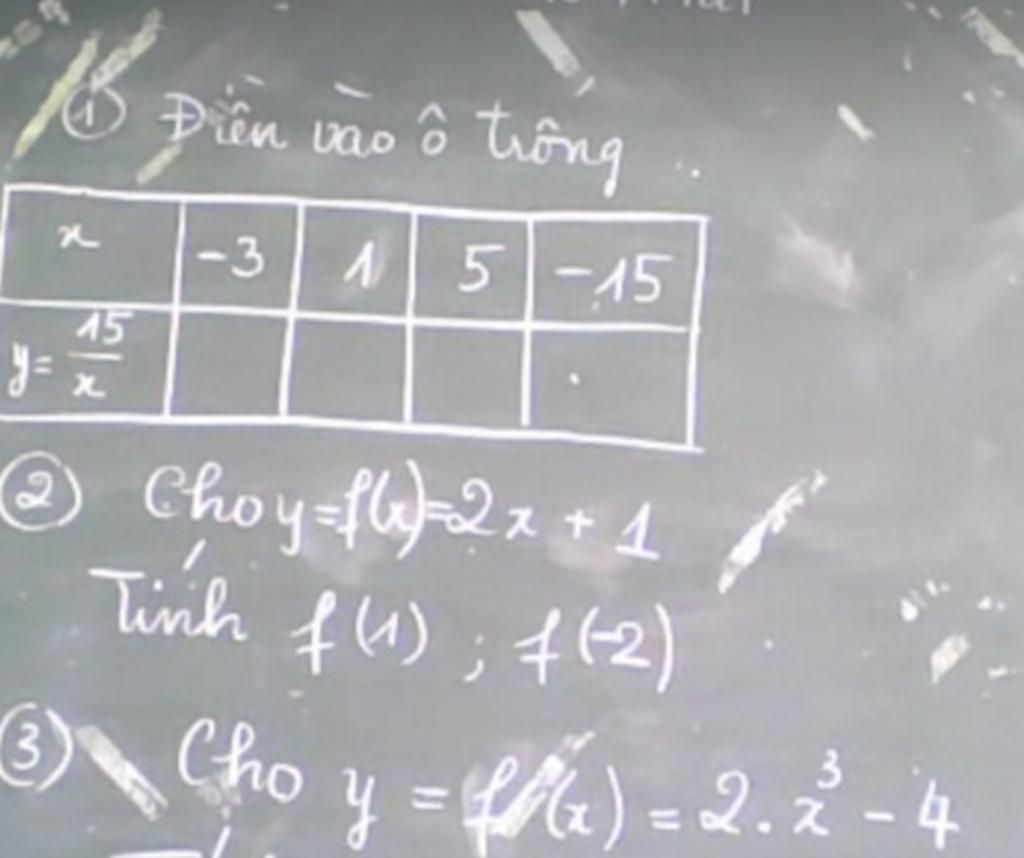 ① Điền vào ô trống
x -3 1 5 -15
y = 15/x
② Cho y=f(x)=2x + 1
Tính f(1) ; f(-2)
③ Cho y = f(x) = 2.x³ - 4